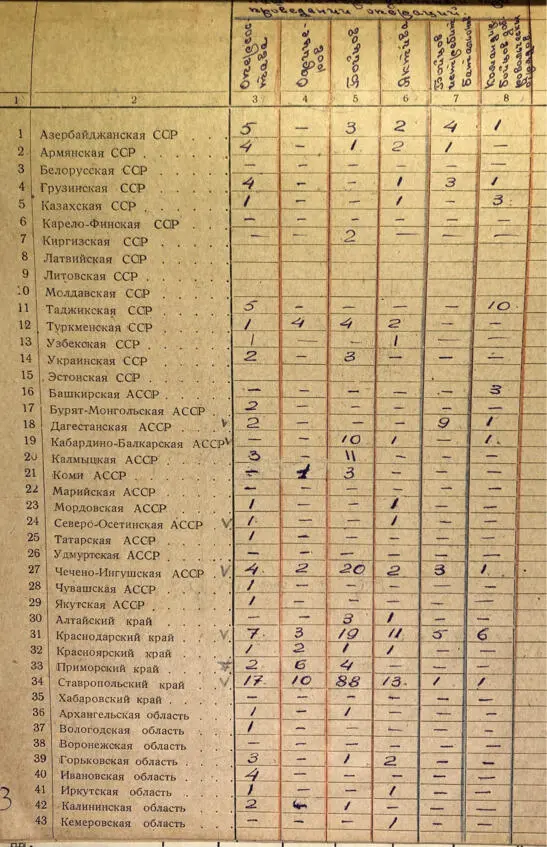 проведении операций:
Оперсос-
тава
Офице-
ров
Бойцов
Актива
Бойцов
истребит.
Батальонов
Командир.
Бойцов
отрядов
1 2 3 4 5 6 7 8
1 Азербайджанская ССР 5 — 3 2 4 1
2 Армянская ССР 4 — 1 2 1 —
3 Белорусская ССР — — — — — —
4 Грузинская ССР 4 — — 1 3 1
5 Казахская ССР 1 — — 1 — 3
6 Карело-Финская ССР — — — — — —
7 Киргизская ССР — — 2 — — —
8 Латвийская ССР
9 Литовская ССР
10 Молдавская ССР
11 Таджикская ССР 5 — — — — 10
12 Туркменская ССР 1 4 4 2 — —
13 Узбекская ССР 1 — — 1 — —
14 Украинская ССР 2 — 3 — — —
15 Эстонская ССР
16 Башкирская АССР — — — — — 3
17 Бурят-Монгольская АССР 2 — — — — —
18 Дагестанская АССР V 2 — — — 9 1
19 Кабардино-Балкарская АССР V — — 10 1 — 1
20 Калмыцкая АССР 3 — 11 — — —
21 Коми АССР — 1 3 — — —
22 Марийская АССР — — — — — —
23 Мордовская АССР 1 — — 1 — —
24 Северо-Осетинская АССР V 1 — — 1 — —
25 Татарская АССР 1 — — — — —
26 Удмуртская АССР — — — — — —
27 Чечено-Ингушская АССР V 4 2 20 2 3 1
28 Чувашская АССР 1 — — — — —
29 Якутская АССР 1 — — — — —
30 Алтайский край — — 3 1 — —
31 Краснодарский край V 7 3 19 11 5 6
32 Красноярский край 1 2 1 1 — —
33 Приморский край 2 6 4 — — —
34 Ставропольский край V 17 10 88 13 1 1
35 Хабаровский край — — — — — —
36 Архангельская область 1 — 1 — — —
37 Вологодская область 1 — — — — —
38 Воронежская область — — — — — —
39 Горьковская область 3 — 1 2 — —
40 Ивановская область 4 — — — — —
41 Иркутская область 1 — — 1 — —
3
42 Калининская область 2 — 1 — — —
43 Кемеровская область — — — 1 — —